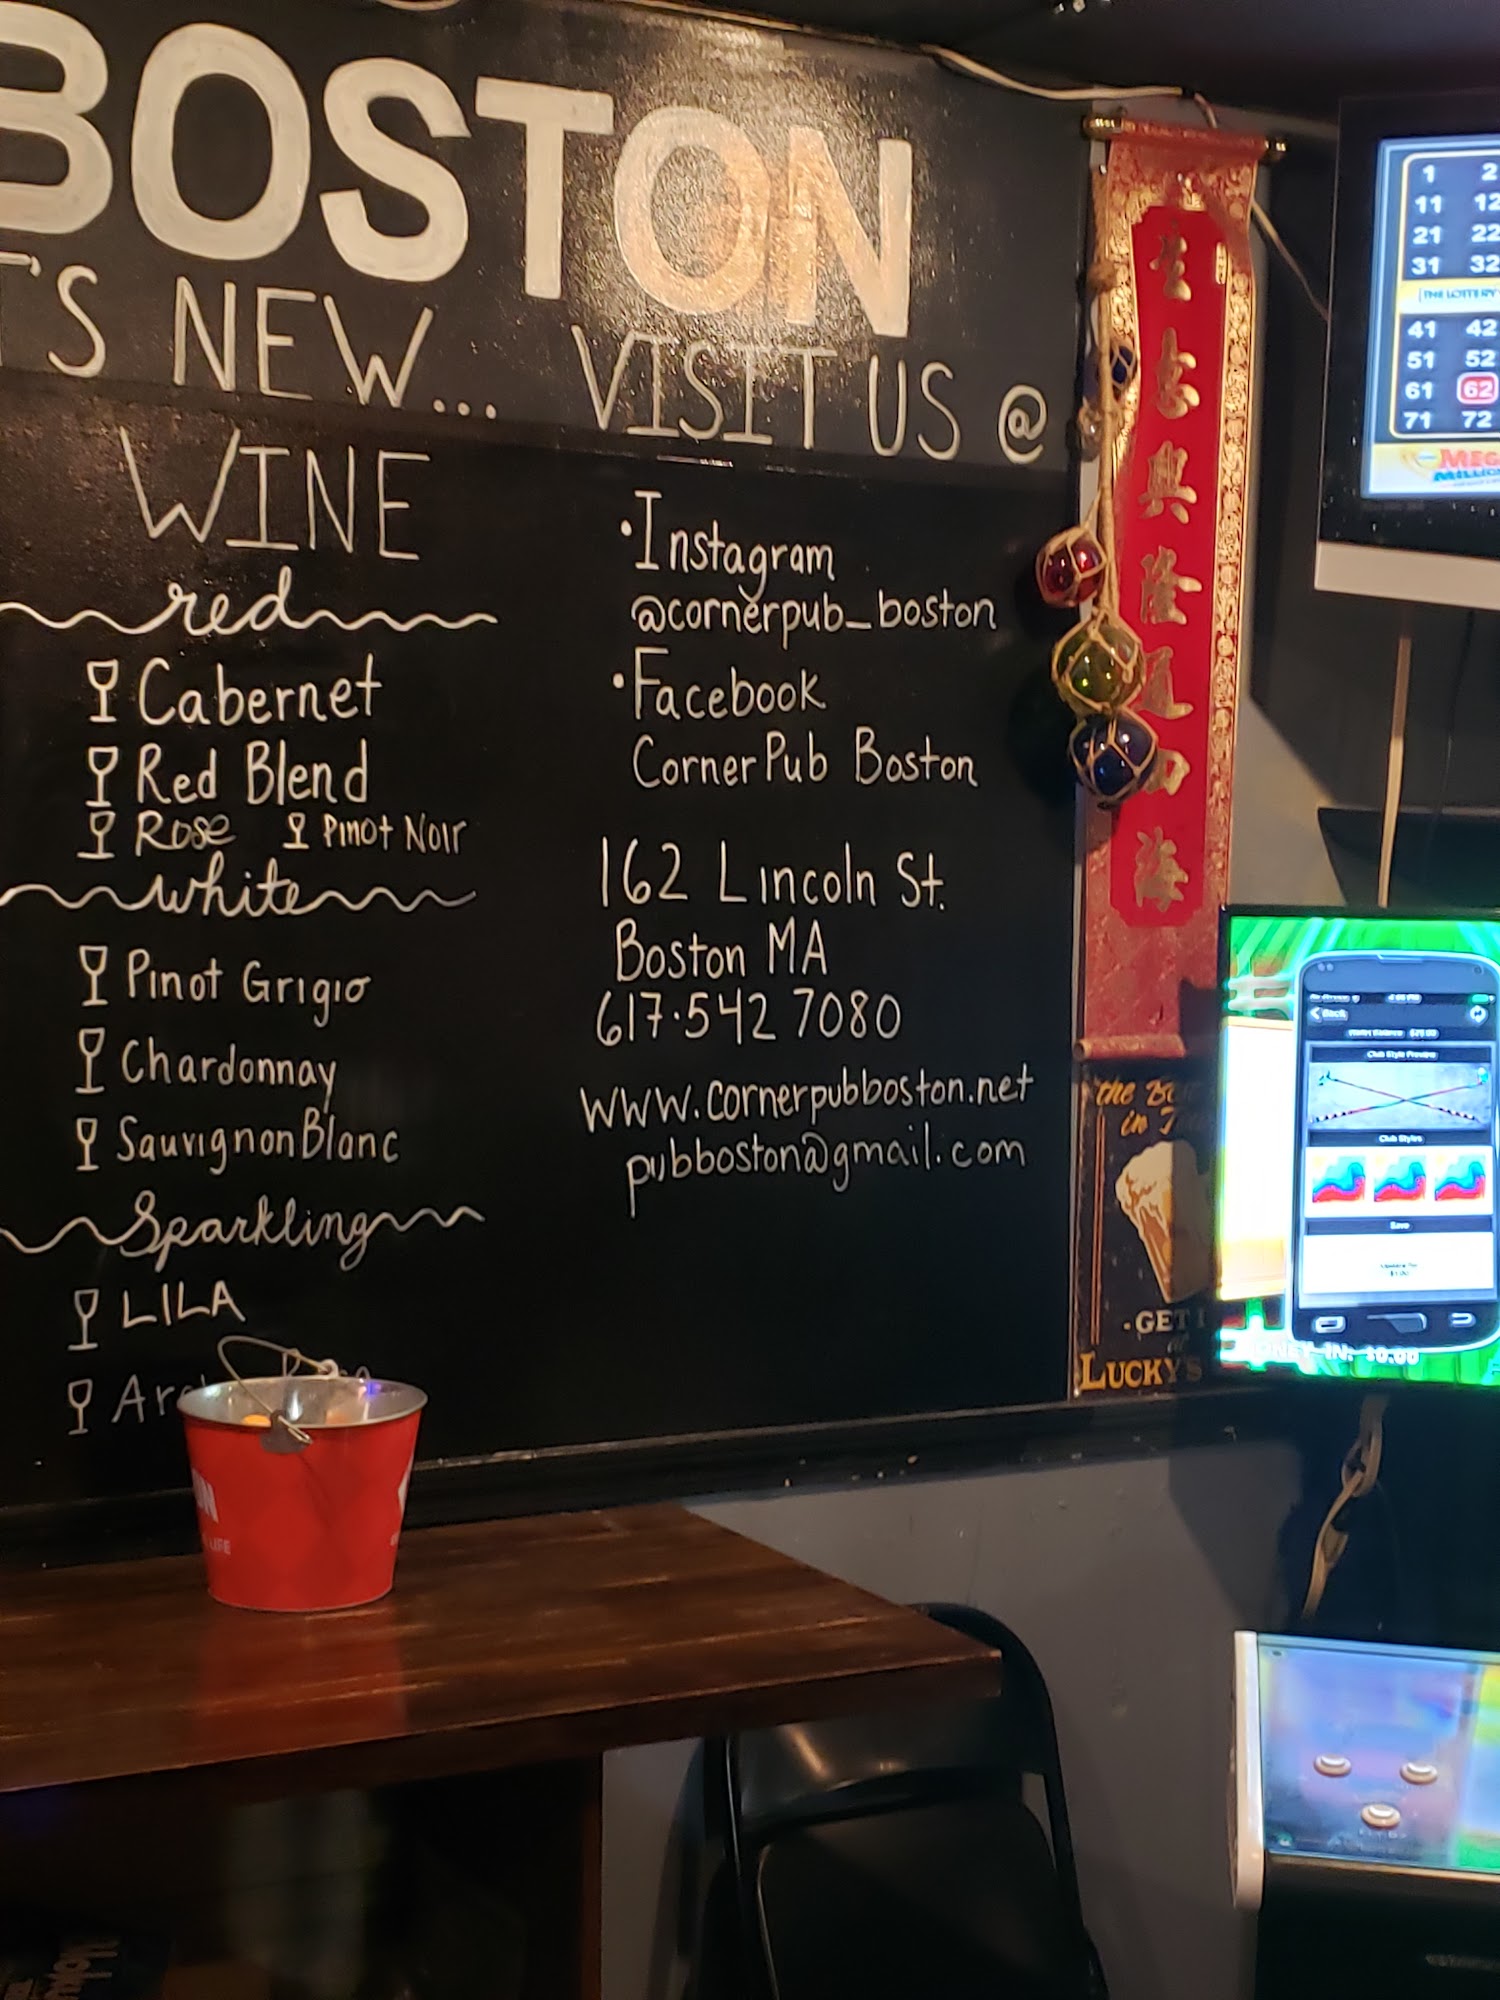 BOSTON
T'S NEW... VISIT US @
WINE
red
Cabernet
Red Blend
Rose Pinot Noir
white
Pinot Grigio
Chardonnay
Sauvignon Blanc
Sparkling
LILA
•Instagram
@cornerpub_boston
•Facebook
CornerPub Boston
162 Lincoln St.
Boston MA
617·542 7080
www.cornerpubboston.net
pubboston@gmail.com
意興隆通四海
1 2
11 12
21 22
31 32
THE LOTTERY
41 42
51 52
61 62
71 72
MEG
MILLION
Back
Club Style Preview
Club Styles
Save
$1.00
MONEY IN: $0.00
the Be
in T
·GET I
at
LUCKY'S
UN
LIFE